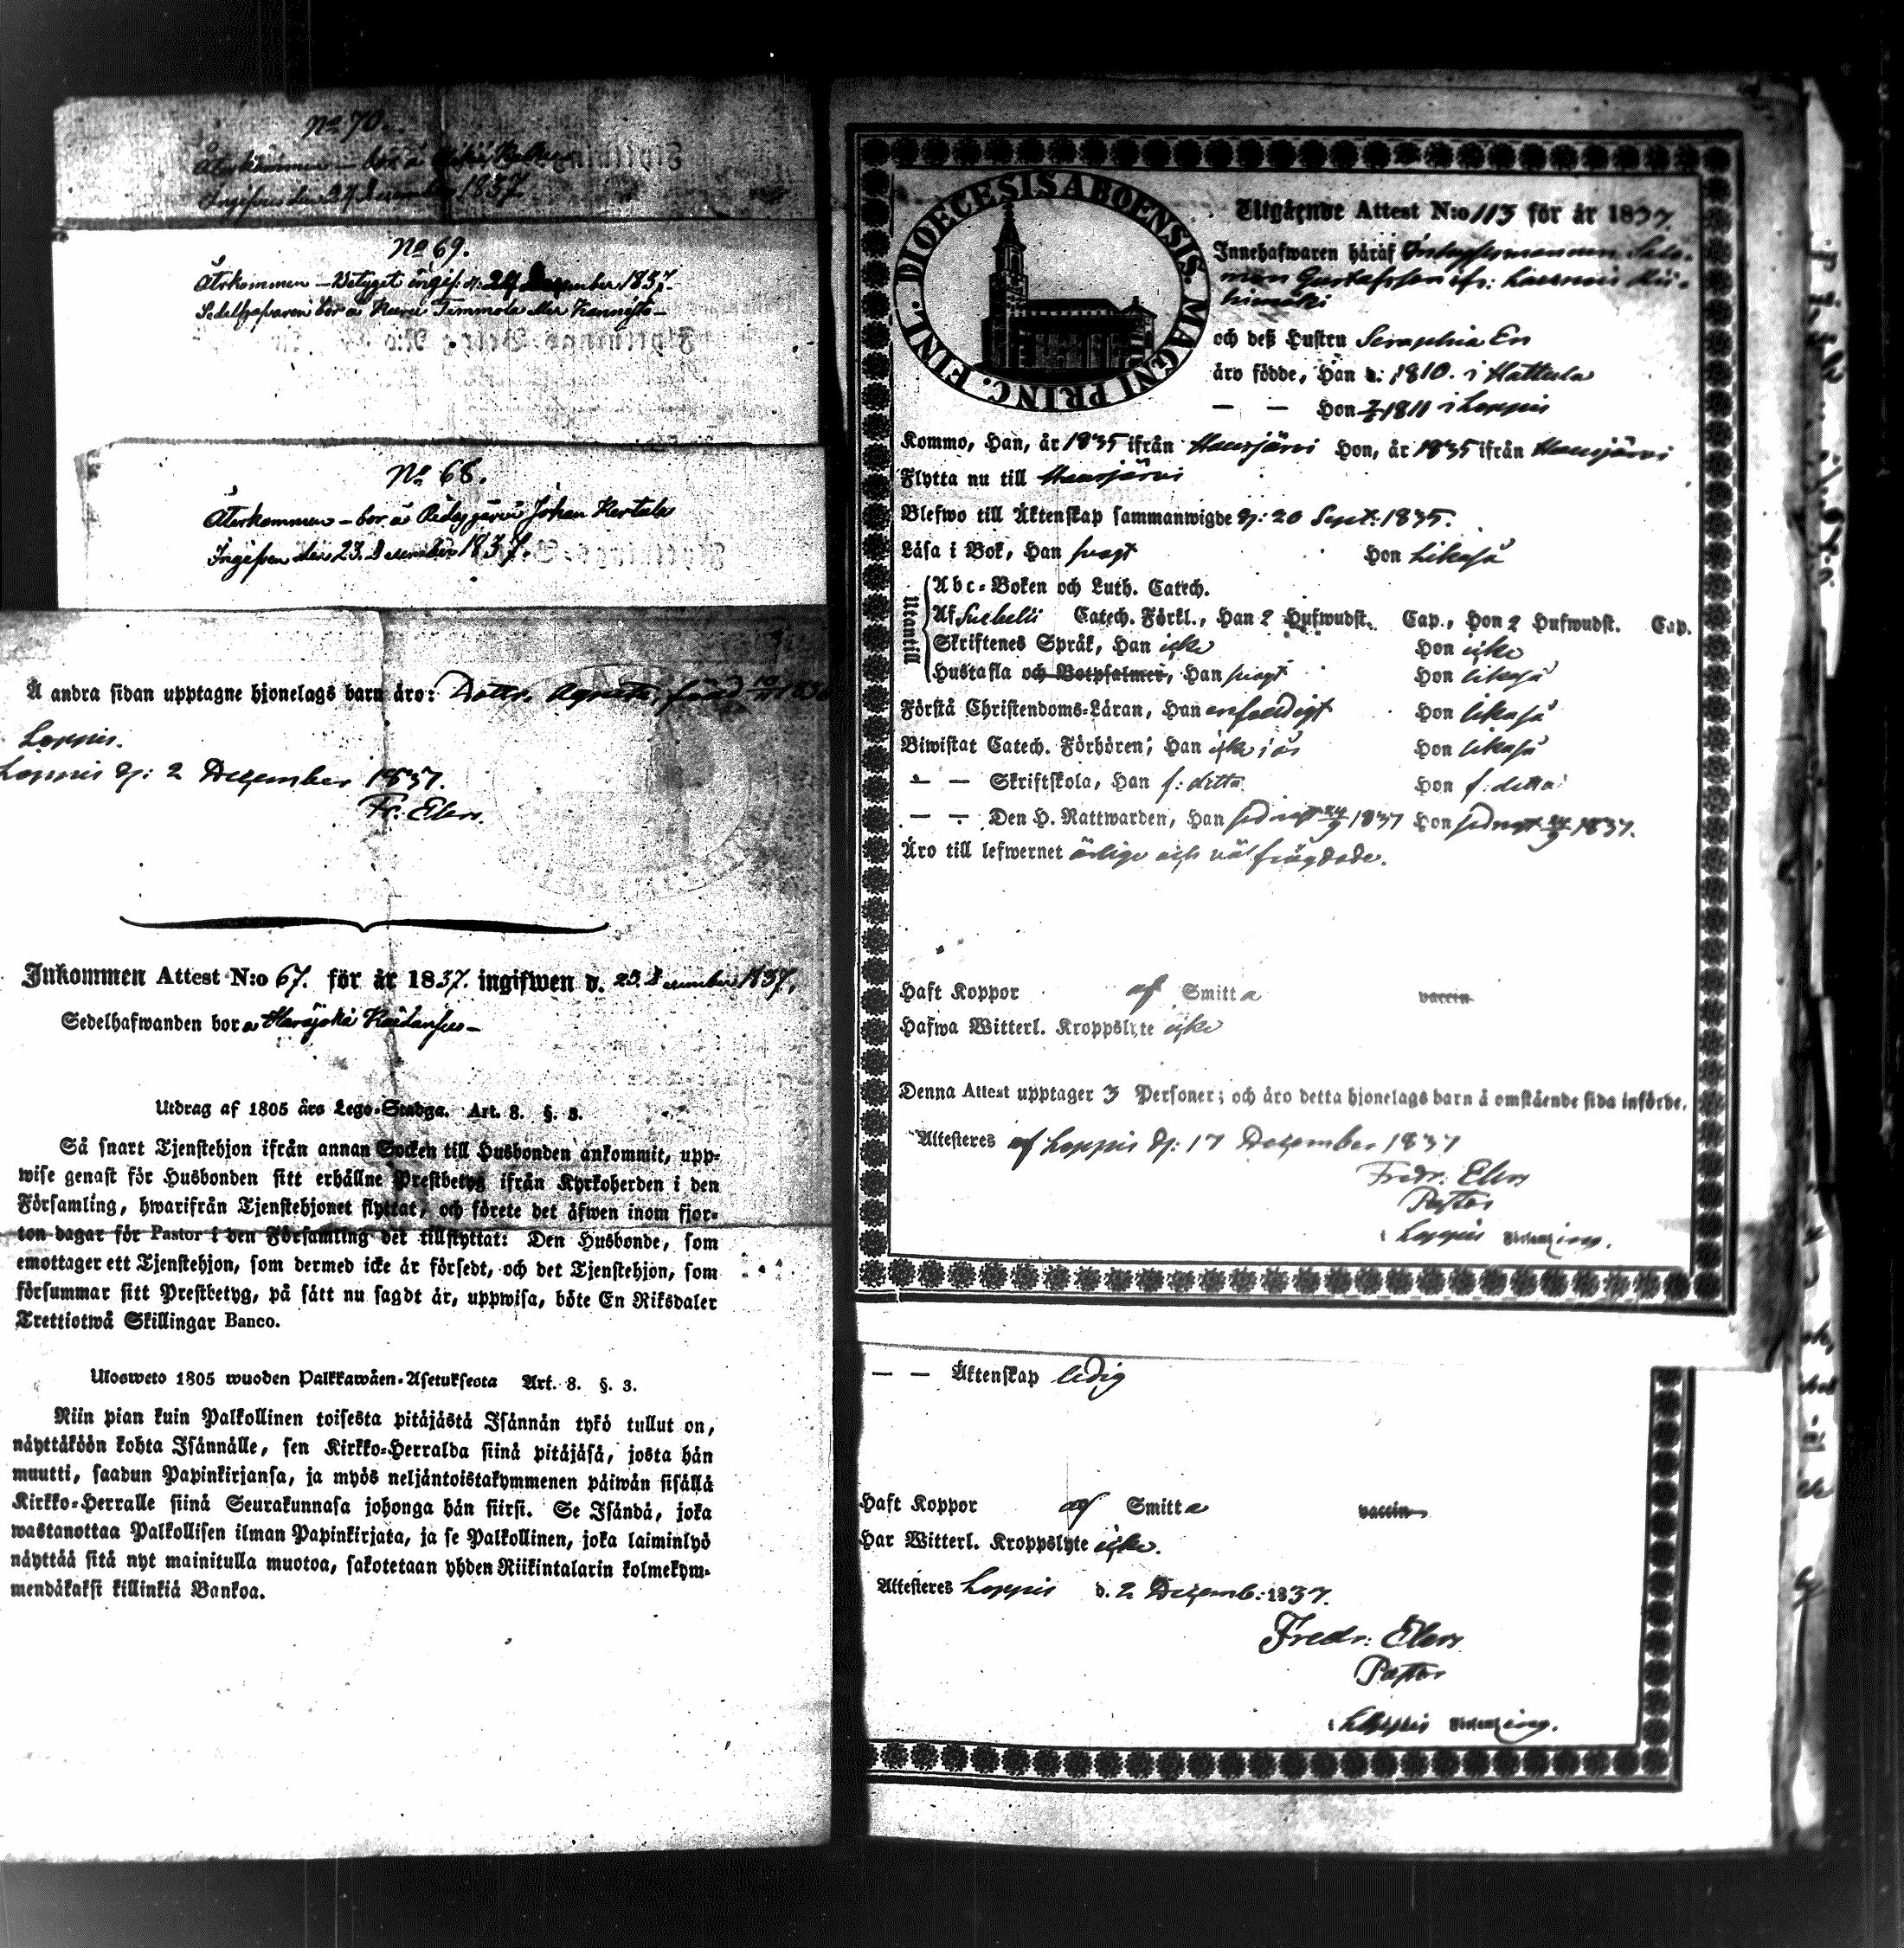 No 70.
Återkommen — bor å
Ingifven den 27 December 1837
No 69.
Återkommen — Betyget ingif. d. 29 December 1837.
Sedelhafvaren bor å Timmola
No 68.
Återkommen — bor å Johan
Ingifven den 23 December 1837.
Å andra sidan upptagne hjonelags barn äro: Dottr. Agneta, född
Loppis.
Loppis d: 2 December 1837.
Fr. Elers.
Inkommen Attest N:o 67. för år 1837. ingifwen d. 23 December 1837.
Sedelhafwanden bor å
Utdrag af 1805 års Lego-Stadga. Art. 8. §. 3.
Så snart Tjenstehjon ifrån annan Socken till Husbonden ankommit, upp-
wise genast för Husbonden sitt erhållne Prestbetyg ifrån Kyrkoherden i den
Församling, hwarifrån Tjenstehjonet flyttat, och förete det äfwen inom fjor-
ton dagar för Pastor i den Församling det tillflyttat: Den Husbonde, som
emottager ett Tjenstehjon, som dermed icke är försedt, och det Tjenstehjon, som
försummar sitt Prestbetyg, på sått nu sagdt är, uppwisa, böte En Riksdaler
Trettiotwå Skillingar Banco.
Ulosweto 1805 wuoden Palkkawäen-Asetuksesta Art. 8. §. 3.
Niin pian kuin Palkollinen toisesta pitäjästä Isännän tykö tullut on,
näyttäköön kohta Isännälle, sen Kirkko-Herralda siinä pitäjäsä, josta hän
muutti, saadun Papinkirjansa, ja myös neljäntoistakymmenen päiwän sisällä
Kirkko-Herralle siinä Seurakunnasa johonga hän siirsi. Se Isändä, joka
wastanottaa Palkollisen ilman Papinkirjata, ja se Palkollinen, joka laiminlyö
näyttää sitä nyt mainitulla muotoa, sakotetaan yhden Riikintalarin kolmekym-
mendäkaksi killinkiä Bankoa.
DIOECESIS ABOENSIS. MAGNI PRINC. FINL.
Utgående Attest N:o 113 för år 1837.
Innehafwaren häraf Salo-
mon Gustafsson ifr:
och deß Hustru Seraphia En
äro födde, Han d: 1810. i Hattula
— — Hon 1811 i Loppis
Kommo, Han, år 1835 ifrån Hausjärvi Hon, år 1835 ifrån Hausjärvi
Flytta nu till Hausjärvi
Blefwo till Äktenskap sammanwigde d: 20 Sept: 1835.
Läsa i Bok, Han svagt Hon likaså
Utantill
Abc-Boken och Luth. Catech.
Af Svebelii Catech. Förkl., Han 2 Hufwudst. Cap., Hon 2 Hufwudst. Cap.
Skriftenes Språk, Han icke Hon icke
Hustafla och Botpsalmer, Han svagt Hon likaså
Förstå Christendoms-Läran, Han enfaldigt Hon likaså
Biwistat Catech. Förhören; Han icke i år Hon likaså
— — Skriftskola, Han f: detta Hon f: detta
— — Den H. Nattwarden, Han sednast 24/9 1837 Hon sednast 24/9 1837.
Äro till lefwernet ärlige och väl frägdade.
Haft Koppor af Smitta vaccin
Hafwa Witterl. Kroppslyte icke
Denna Attest upptager 3 Personer; och äro detta hjonelags barn å omstående sida införde.
Attesteres af Loppis d: 17 December 1837
Fredr. Elers
Pastor
i Loppis Församling.
— — Äktenskap ledig
Haft Koppor af Smitta vaccin
Har Witterl. Kroppslyte icke.
Attesteres Loppis d. 2 Decemb: 1837.
Fredr. Elers
Pastor
i Loppis Församling.